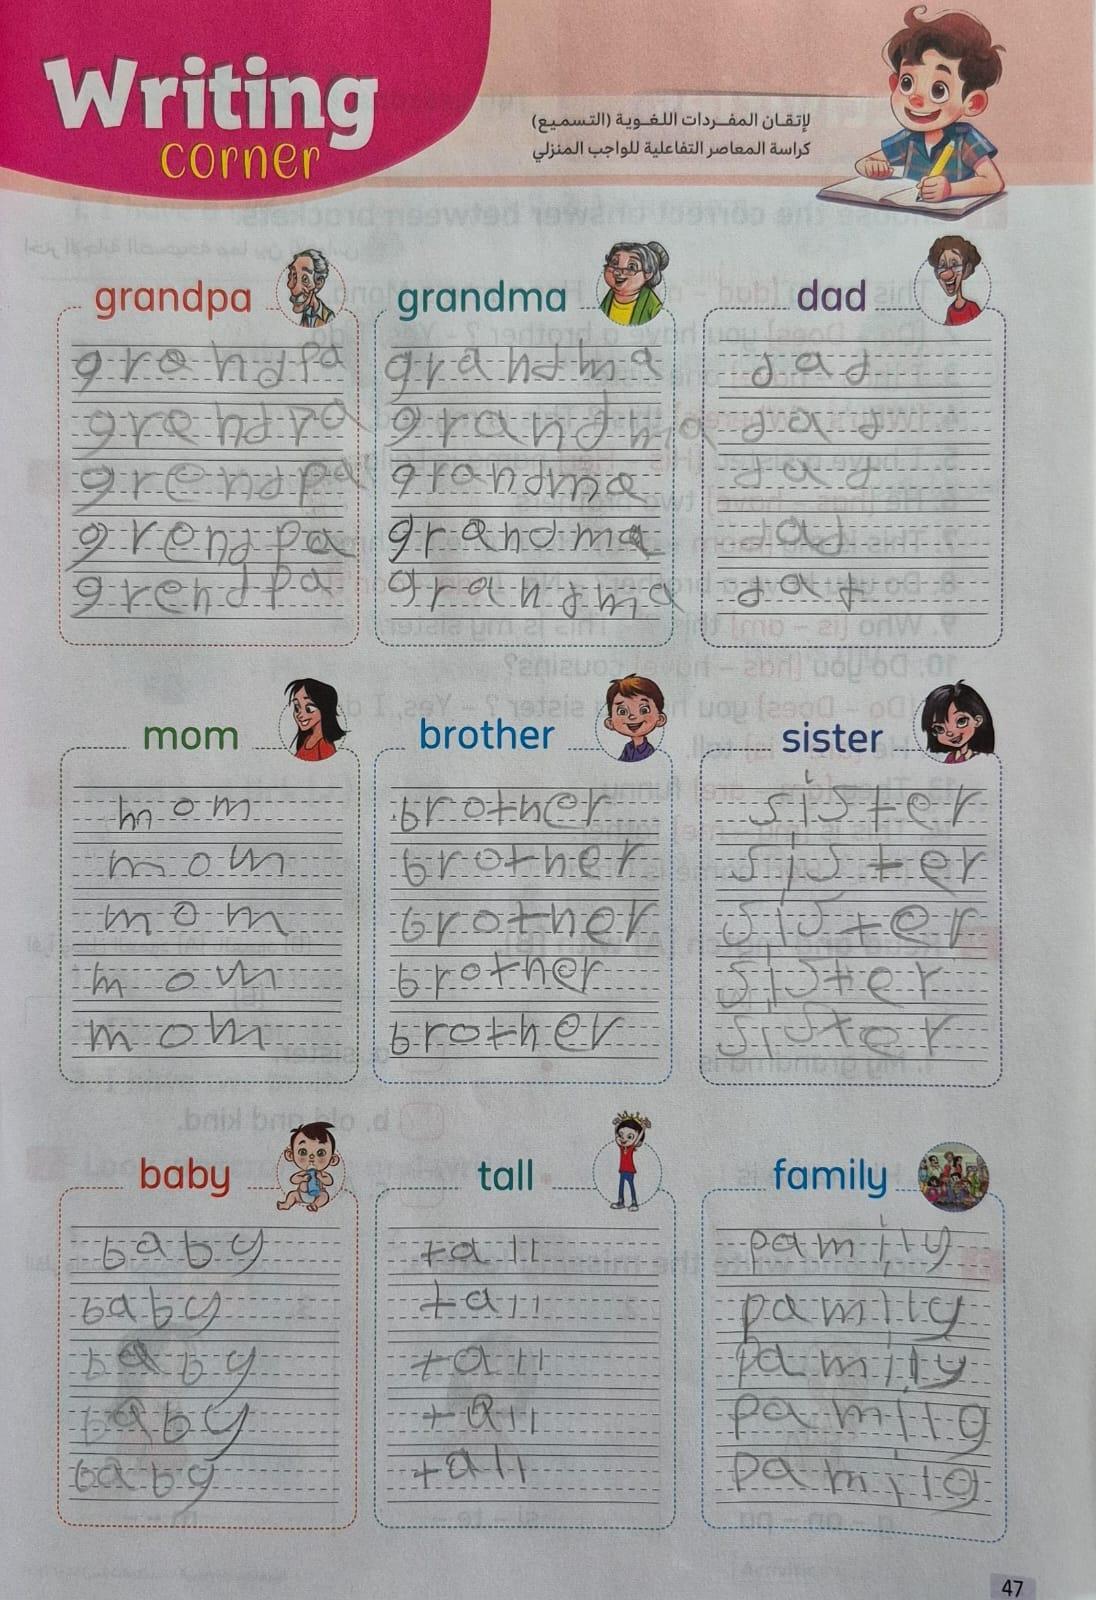 Writing
corner
لإتقان المفردات اللغوية (التسميع)
كراسة المعاصر التفاعلية للواجب المنزلي
grandpa
grandpa
grandpa
grendpa
grendpa
grendpa
grandma
grandma
grandma
grandma
grandma
grandma
dad
dad
dad
dad
dad
dad
mom
mom
mom
mom
mom
mom
brother
brother
brother
brother
brother
brother
sister
sister
sister
sister
sister
sister
baby
baby
baby
baby
baby
baby
tall
tall
tall
tall
tall
tall
family
pamily
pamily
pamily
pamilg
pamilg
47